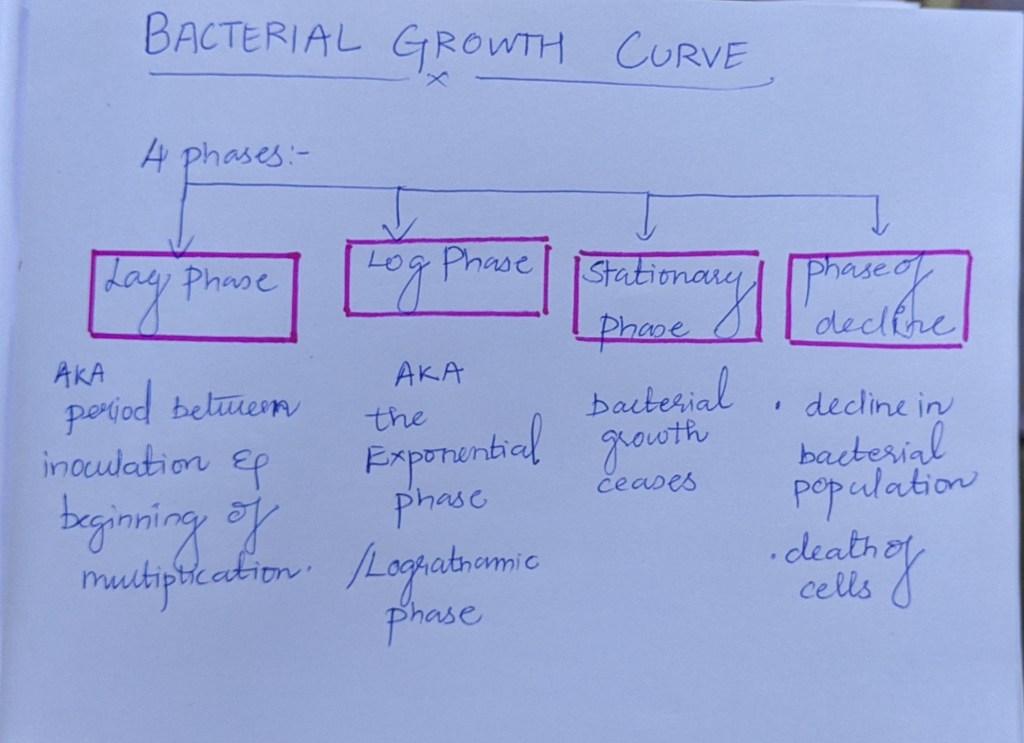 BACTERIAL GROWTH CURVE
x
4 phases:-
Lag Phase
AKA
period between
inoculation &
beginning of
multiplication.
Log Phase
AKA
the
Exponential
phase
/Lograthamic
phase
Stationary
phase
bacterial
growth
ceases
phase of
decline
• decline in
bacterial
population
• death of
cells